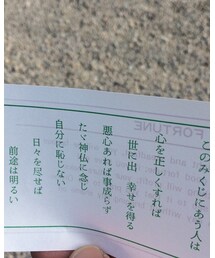 このみくじにあう人は
心を正しくすれば
世に出　幸せを得る
悪心あれば事成らず
たゞ神仏に念じ
自分に恥じない
日々を尽せば
前途は明るい
FORTUNE